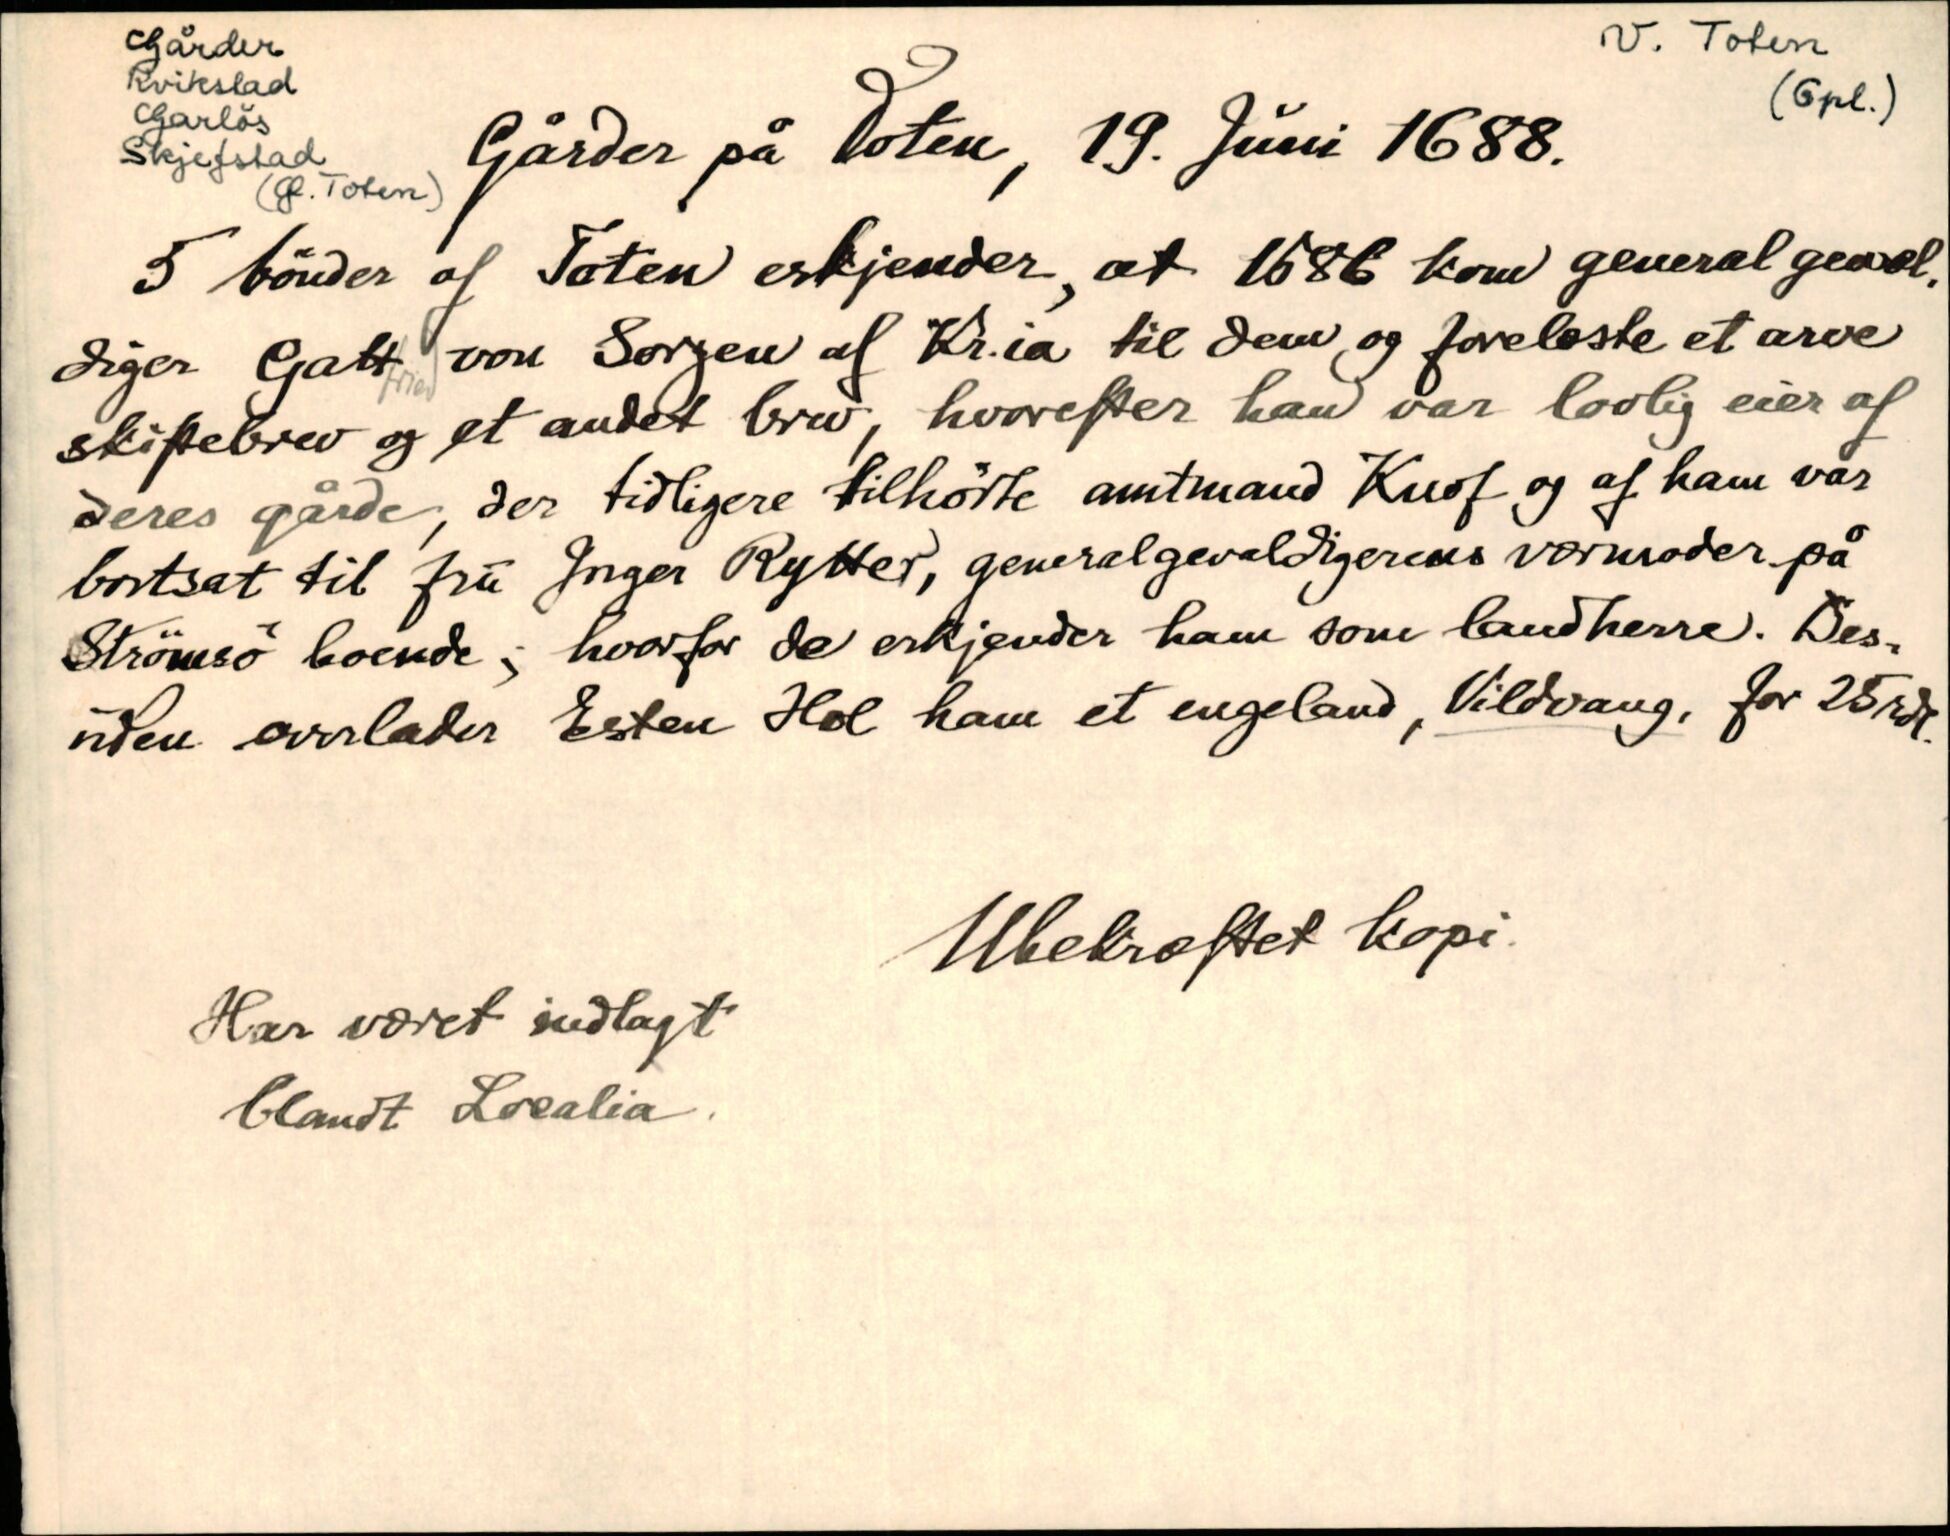 Gårder
Kvikstad
Garlös
Skjefstad
(Ø. Toten)
V. Toten
(Opl.)
Gårder på Toten, 19. Juni 1688.
5 bönder af Toten erkjender, at 1686 kom general geval-
diger Gattfried von Sorgen af Kr.ia til dem og foreleste et arve
skiftebrev og et andet brev, hvorefter han var lovlig eier af
deres gårde, der tidligere tilhörte amtmand Knof og af ham var
bortsat til fru Inger Rytter, generalgevaldigerens værmoder på
Strömsö boende; hvorfor de erkjender ham som landherre. Des-
uden overlader Esten Hol ham et engeland, Vildvang, for 25 rdl.
Ubekræftet kopi.
Har været indlagt
blandt Localia.